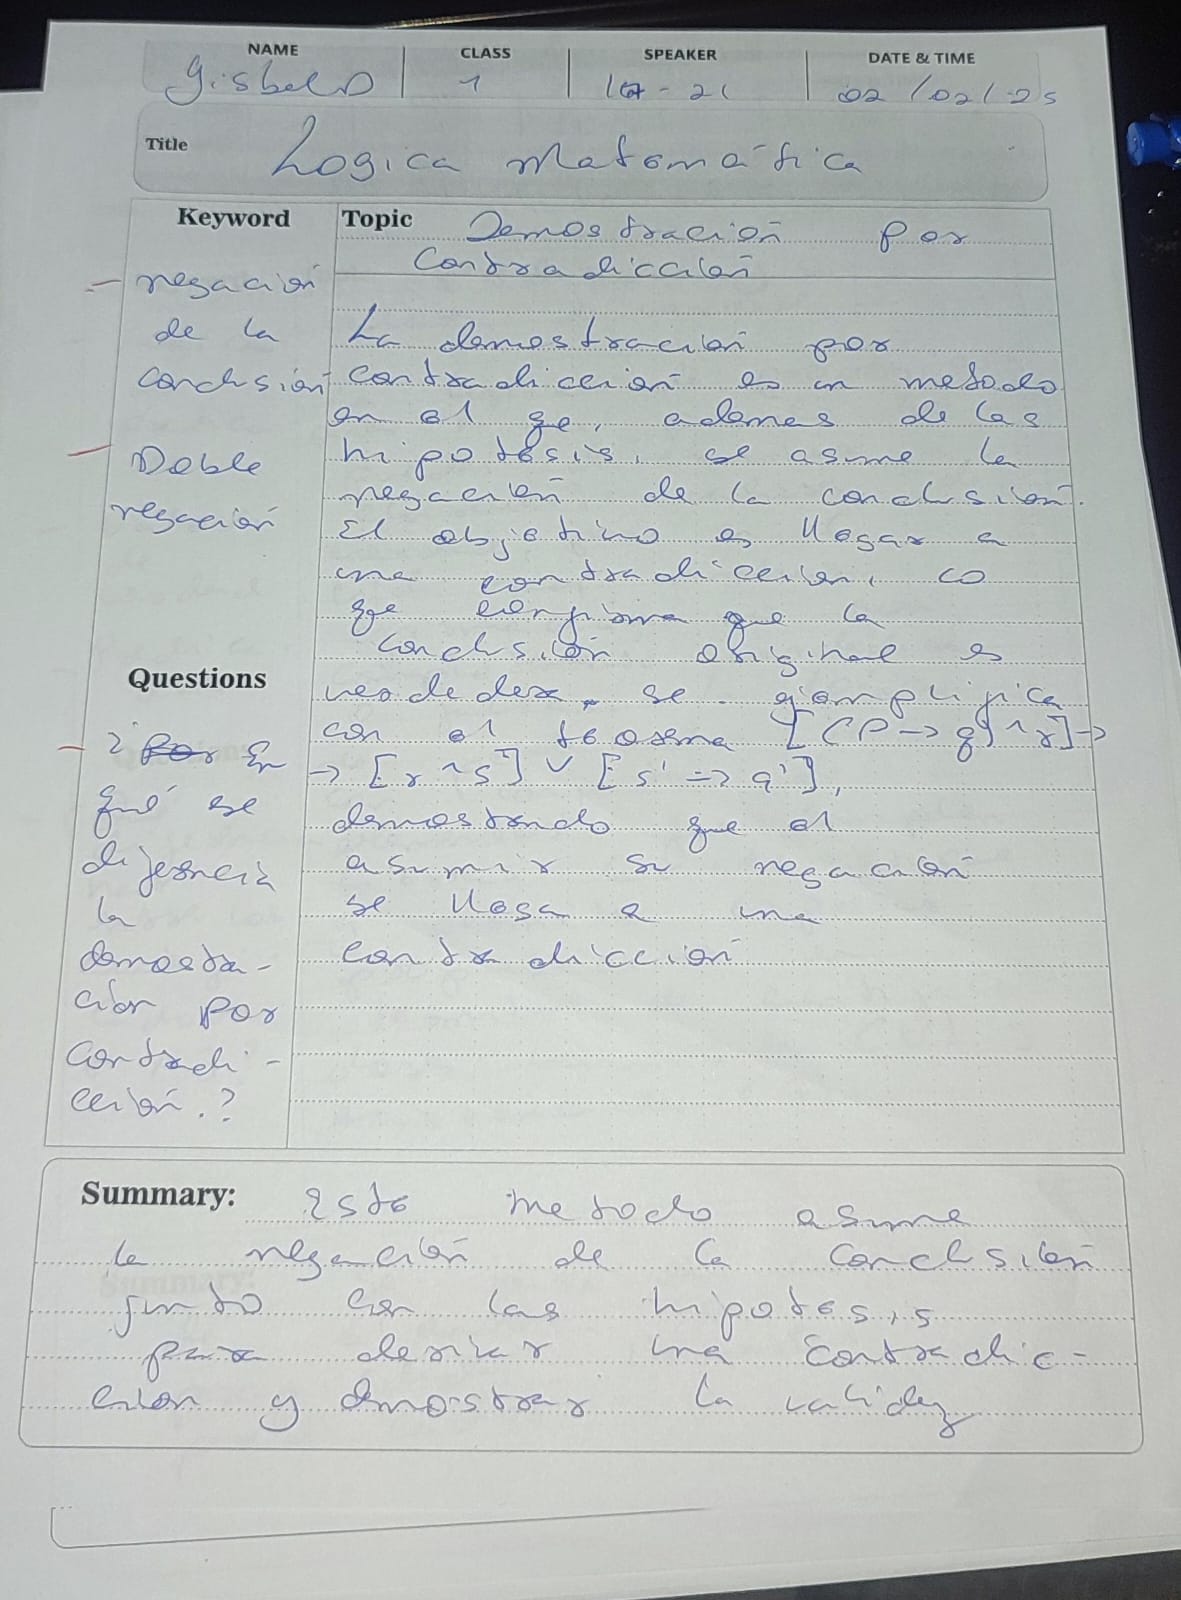 NAME CLASS SPEAKER DATE & TIME
Gisbelo 1 - 21 02/02/25
Title Logica Matemática
Keyword
negación
de la
conclusión
Doble
negación
Questions
¿Por En
qué se
diferencia
la
demostra-
ción por
contradi-
cción.?
Topic Demostración por
Contradicción
La demostración por
contradicción es un metodo
en el qe, ademas de las
hipotesis, se asume la
negación de la conclusión.
El objetivo es llegar a
una contradiccion, lo
qe confirma que la
conclusión original es
se ejemplifica
con el teorema [(P → q) ^ r] →
→ [r ^ s'] v [s' => q'],
demostrando que al
asumir su negación
se llega a una
contradicción
Summary: Este metodo asume
la negación de la conclusión
junto con las hipotesis
para derivar una contradic-
cion y demostrar la validez